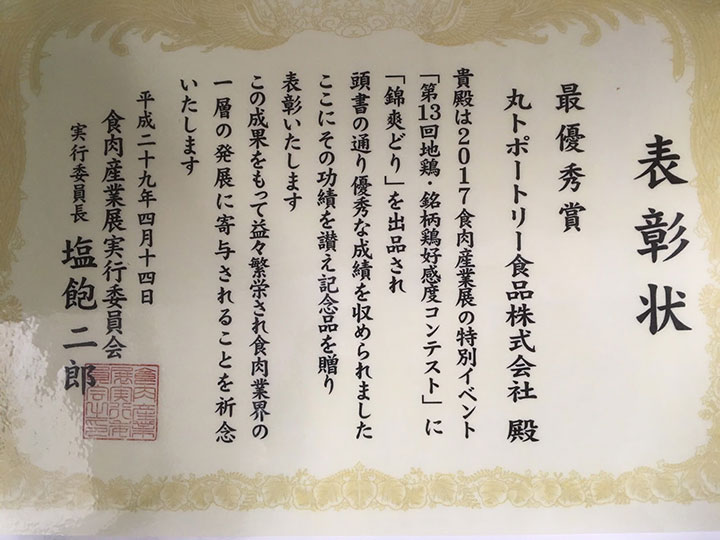 表彰状
最優秀賞
丸トポートリー食品株式会社 殿
貴殿は2017食肉産業展の特別イベント
「第13回地鶏・銘柄鶏好感度コンテスト」に
「錦爽どり」を出品され
頭書の通り優秀な成績を収められました
ここにその功績を讃え記念品を贈り
表彰いたします
この成果をもって益々繁栄され食肉業界の
一層の発展に寄与されることを祈念
いたします
平成二十九年四月十四日
食肉産業展実行委員会
実行委員長 塩飽二郎